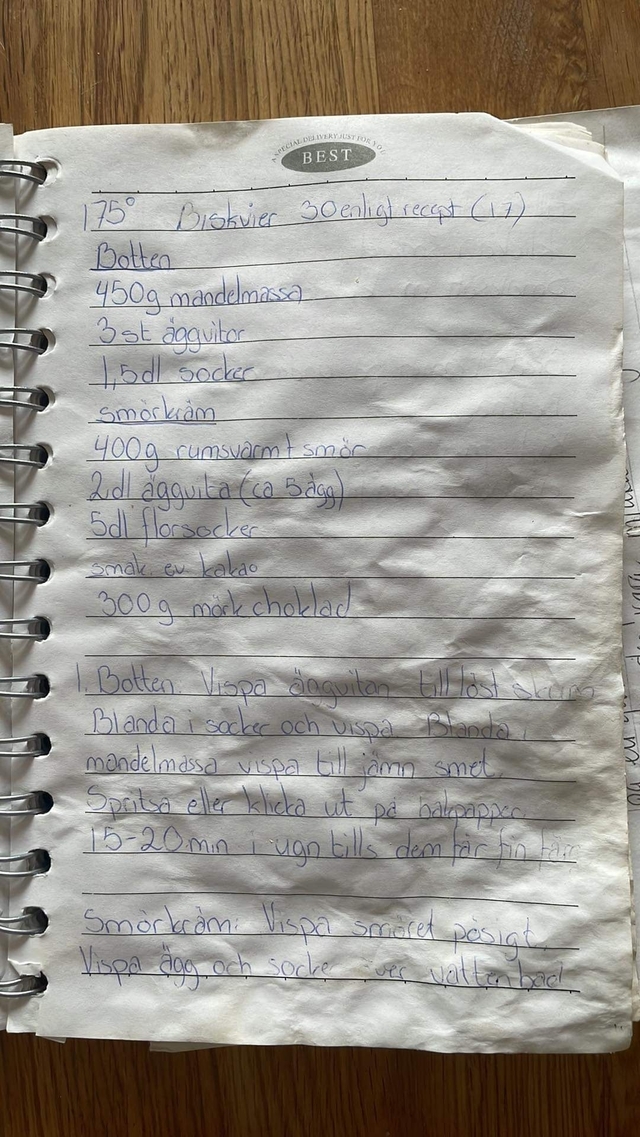 A SPECIAL DELIVERY JUST FOR YOU
BEST
175° Biskvier 30 enligt recept (17)
Botten
450g mandelmassa
3 st äggvitor
1,5dl socker
smörkräm
400g rumsvarmt smör
2dl äggvita (ca 5 ägg)
5dl florsocker
smak. ev kakao
300g mörk choklad
1. Botten: Vispa till löst skum
Blanda i socker och vispa Blanda i
mandelmassa vispa till jämn smet.
Spritsa eller klicka ut på bakpapper
15-20 min i ugn tills dem får fin färg
Smörkräm: Vispa smöret pösigt.
Vispa ägg och socker över vattenbad